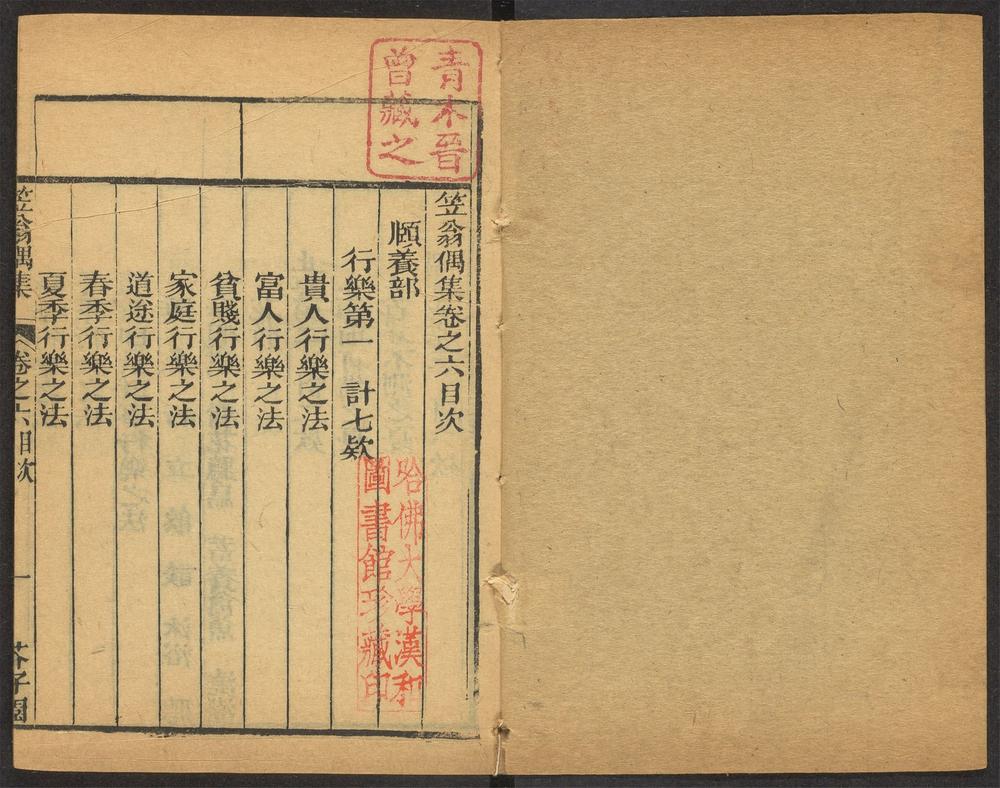 青木晉
曾藏之
笠翁偶集卷之六目次
頤養部
行樂第一　計七欵
貴人行樂之法
富人行樂之法
貧賤行樂之法
家庭行樂之法
道途行樂之法
春季行樂之法
夏季行樂之法
笠翁偶集　卷之六目次　一　芥子園
哈佛大學漢和
圖書館珍藏印